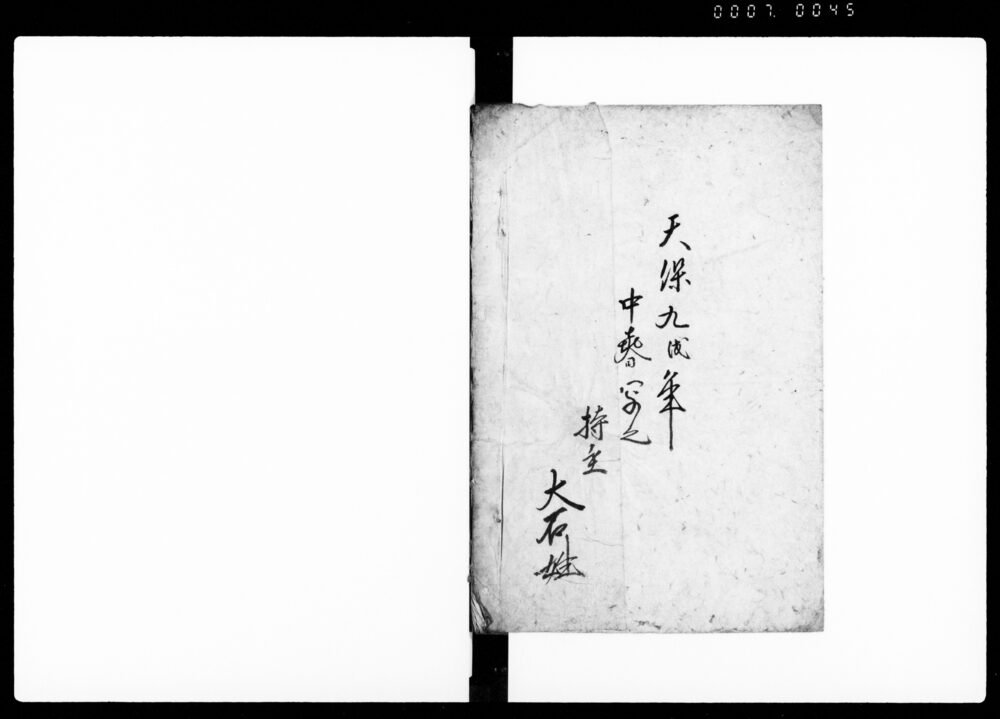 0007 0045
天保九戌年
中春写之
持主
大石姓